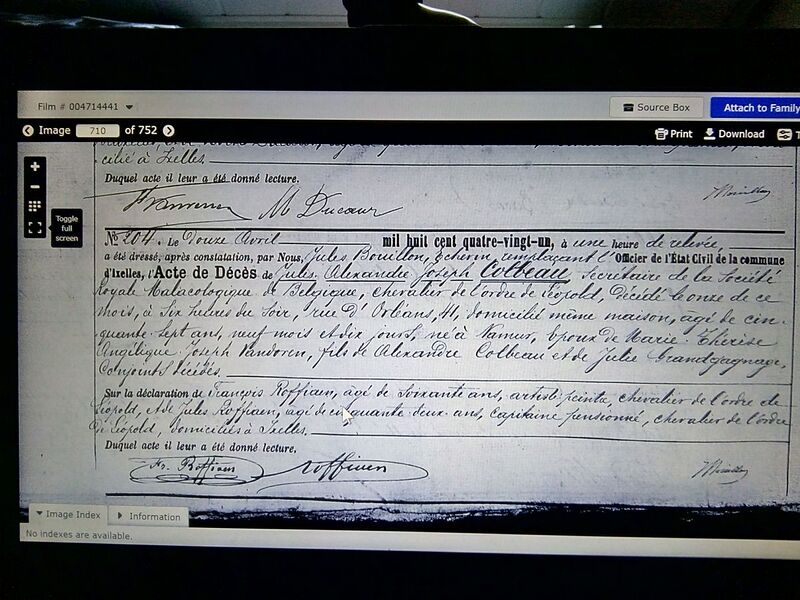 Film # 004714441
Source Box
Attach to Family
Image 710 of 752
Print
Download
T
Toggle full screen
cilié à Ixelles
Duquel acte il leur a été donné lecture.
M Ducœur
N° 204. Le Douze Avril mil huit cent quatre-vingt-un, à une heure de relevée,
a été dressé, après constatation, par Nous, Jules Bouillon, Echevin remplaçant l' Officier de l'État Civil de la commune
d'Ixelles, l'Acte de Décès de Jules Alexandre Joseph Colbeau, Secrétaire de la Société
Royale Malacologique de Belgique, chevalier de l'ordre de Léopold, Décédé le onze de ce
mois, à Six heures du Soir, rue d'Orléans, 41, domicilié même maison, âgé de cin-
quante-Sept ans, neuf mois et dix jours, né à Namur, Epoux de Marie Thérèse
Angélique Joseph Vandoren, fils de Alexandre Colbeau et de Julie Grandgagnage,
Conjoints Décédés.
Sur la déclaration de François Roffiaen, âgé de Soixante ans, artiste peintre, chevalier de l'ordre de
Léopold, et de Jules Roffiaen, âgé de cinquante deux ans, capitaine pensionné, chevalier de l'ordre
de Léopold, domiciliés à Ixelles.
Duquel acte il leur a été donné lecture.
Fr. Roffiaen Roffiaen JBouillon
Image Index
Information
No indexes are available.